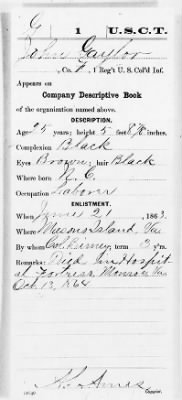 G | 1 | U.S.C.T.
John Gaylor
, Co. F, 1 Reg't U. S. Col'd Inf.
Appears on
Company Descriptive Book
of the organization named above.
DESCRIPTION.
Age 25 years; height 5 feet 8 inches.
Complexion Black
Eyes Brown; hair Black
Where born N. C.
Occupation Laborer
ENLISTMENT.
When June 21, 1863.
Where Masons Island, Va
By whom Col. Birney; term 3 y'rs.
Remarks: Died In Hospit
at Fortress Monroe Va
Oct. 13, 1864
Copyist.